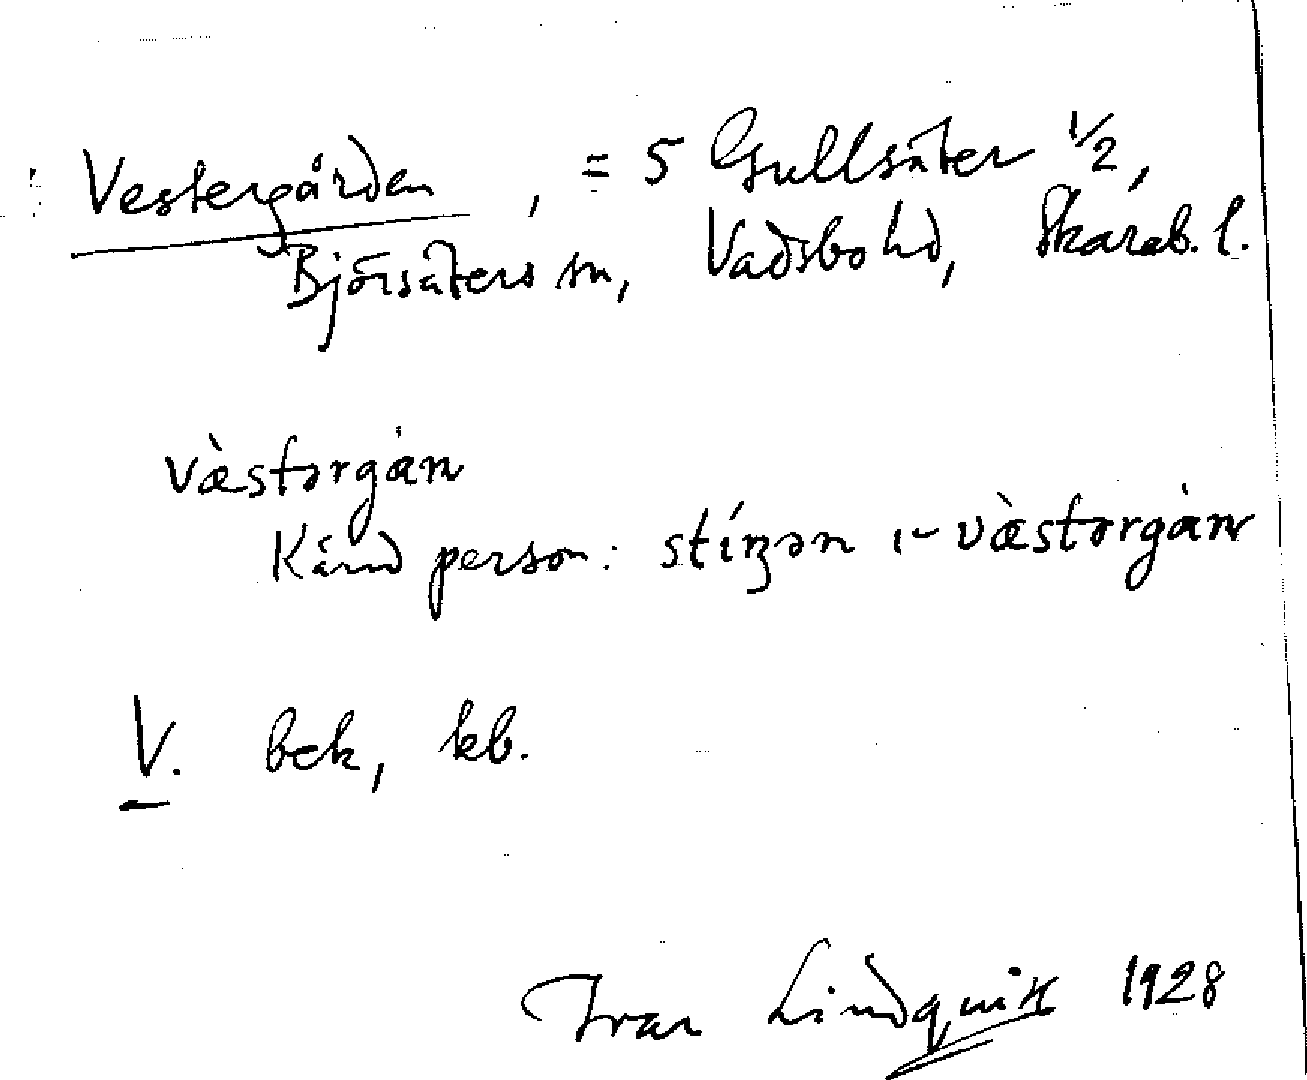 Vestergården, = 5 Gullsäter 1/2,
Björsäters sn, Vadsbo hd, Skarab. l.
væ̀stərgån
Känd person: stíŋən i væ̀stərgån
V. bek, kb.
Ivar Lindquist 1928